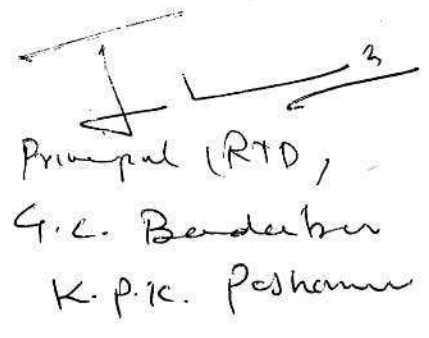 Principal (RTD,
G.C. Bandakur
K.P.K. Peshawar